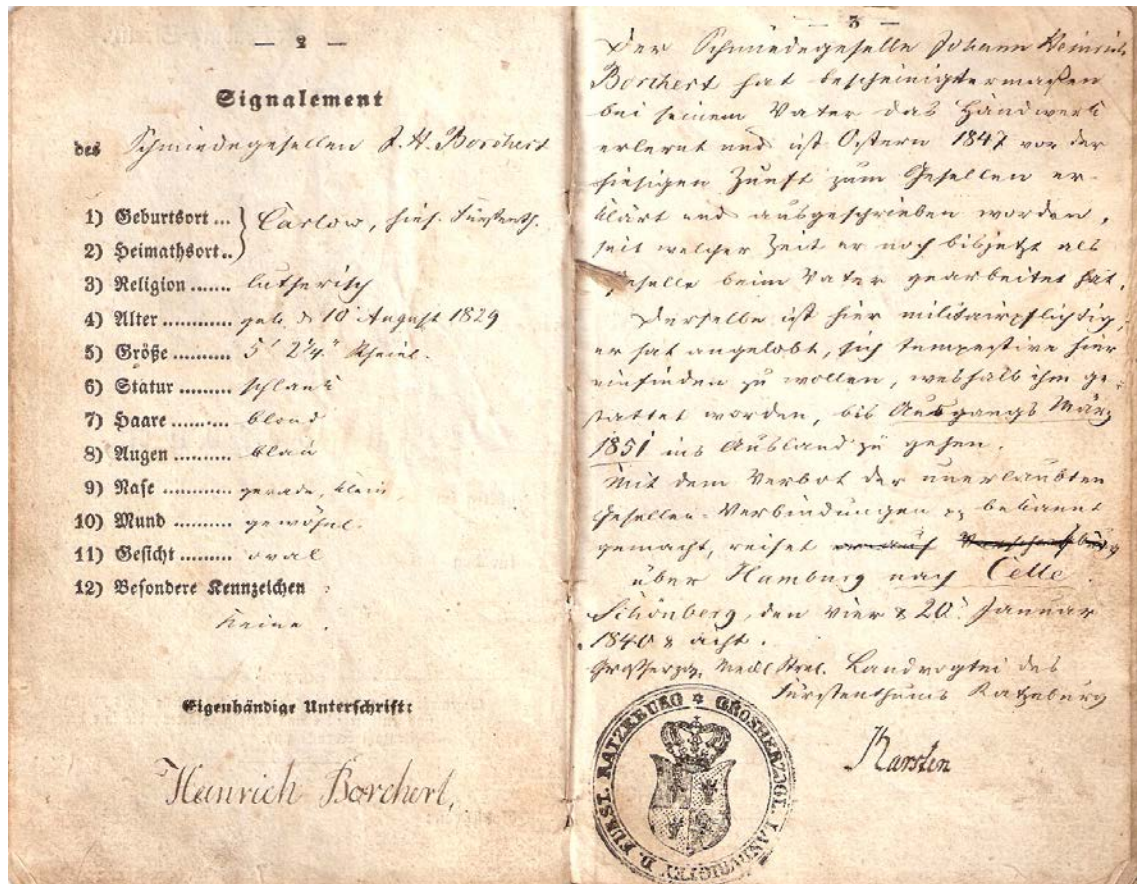 — 2 —
Signalement
des Schmiedegesellen J. H. Borchert
1) Geburtsort ... } Carlow, hies. Fürstenth.
2) Heimathsort ..
3) Religion ....... lutherisch
4) Alter ........... geb. d. 10 August 1829
5) Größe .......... 5' 2¼" Rheinl.
6) Statur ......... schlank
7) Haare .......... blond
8) Augen .......... blau
9) Nase ........... gerade, klein,
10) Mund .......... gewöhnl.
11) Gesicht ......... oval
12) Besondere Kennzeichen :
Keine .
Eigenhändige Unterschrift:
Heinrich Borchert,
— 3 —
Der Schmiedegeselle Johann Heinrich
Borchert hat bescheinigtermaßen
bei seinem Vater das Handwerk
erlernt und ist Ostern 1847 von der
hiesigen Zunft zum Gesellen er-
klärt und ausgeschrieben worden,
seit welcher Zeit er noch bis jetzt als
Geselle beim Vater gearbeitet hat.
Derselbe ist hier militairpflichtig,
er hat angelobt, sich tempestive hier
einfinden zu wollen, weshalb ihm ge-
stattet worden, bis Ausgangs März
1851 ins Ausland zu gehen.
Mit dem Verbot der unerlaubten
Gesellen-Verbindungen bekannt
gemacht, reiset
über Hamburg nach Celle.
Schönberg, den vier & 20. Januar
1840 & acht.
Großherzogl. Meckl. Strel. Landvogtei des
Fürstenthums Ratzeburg
Karsten
GROSHERZOGL. LANDVOIGTEI D. FURST. RATZEBURG